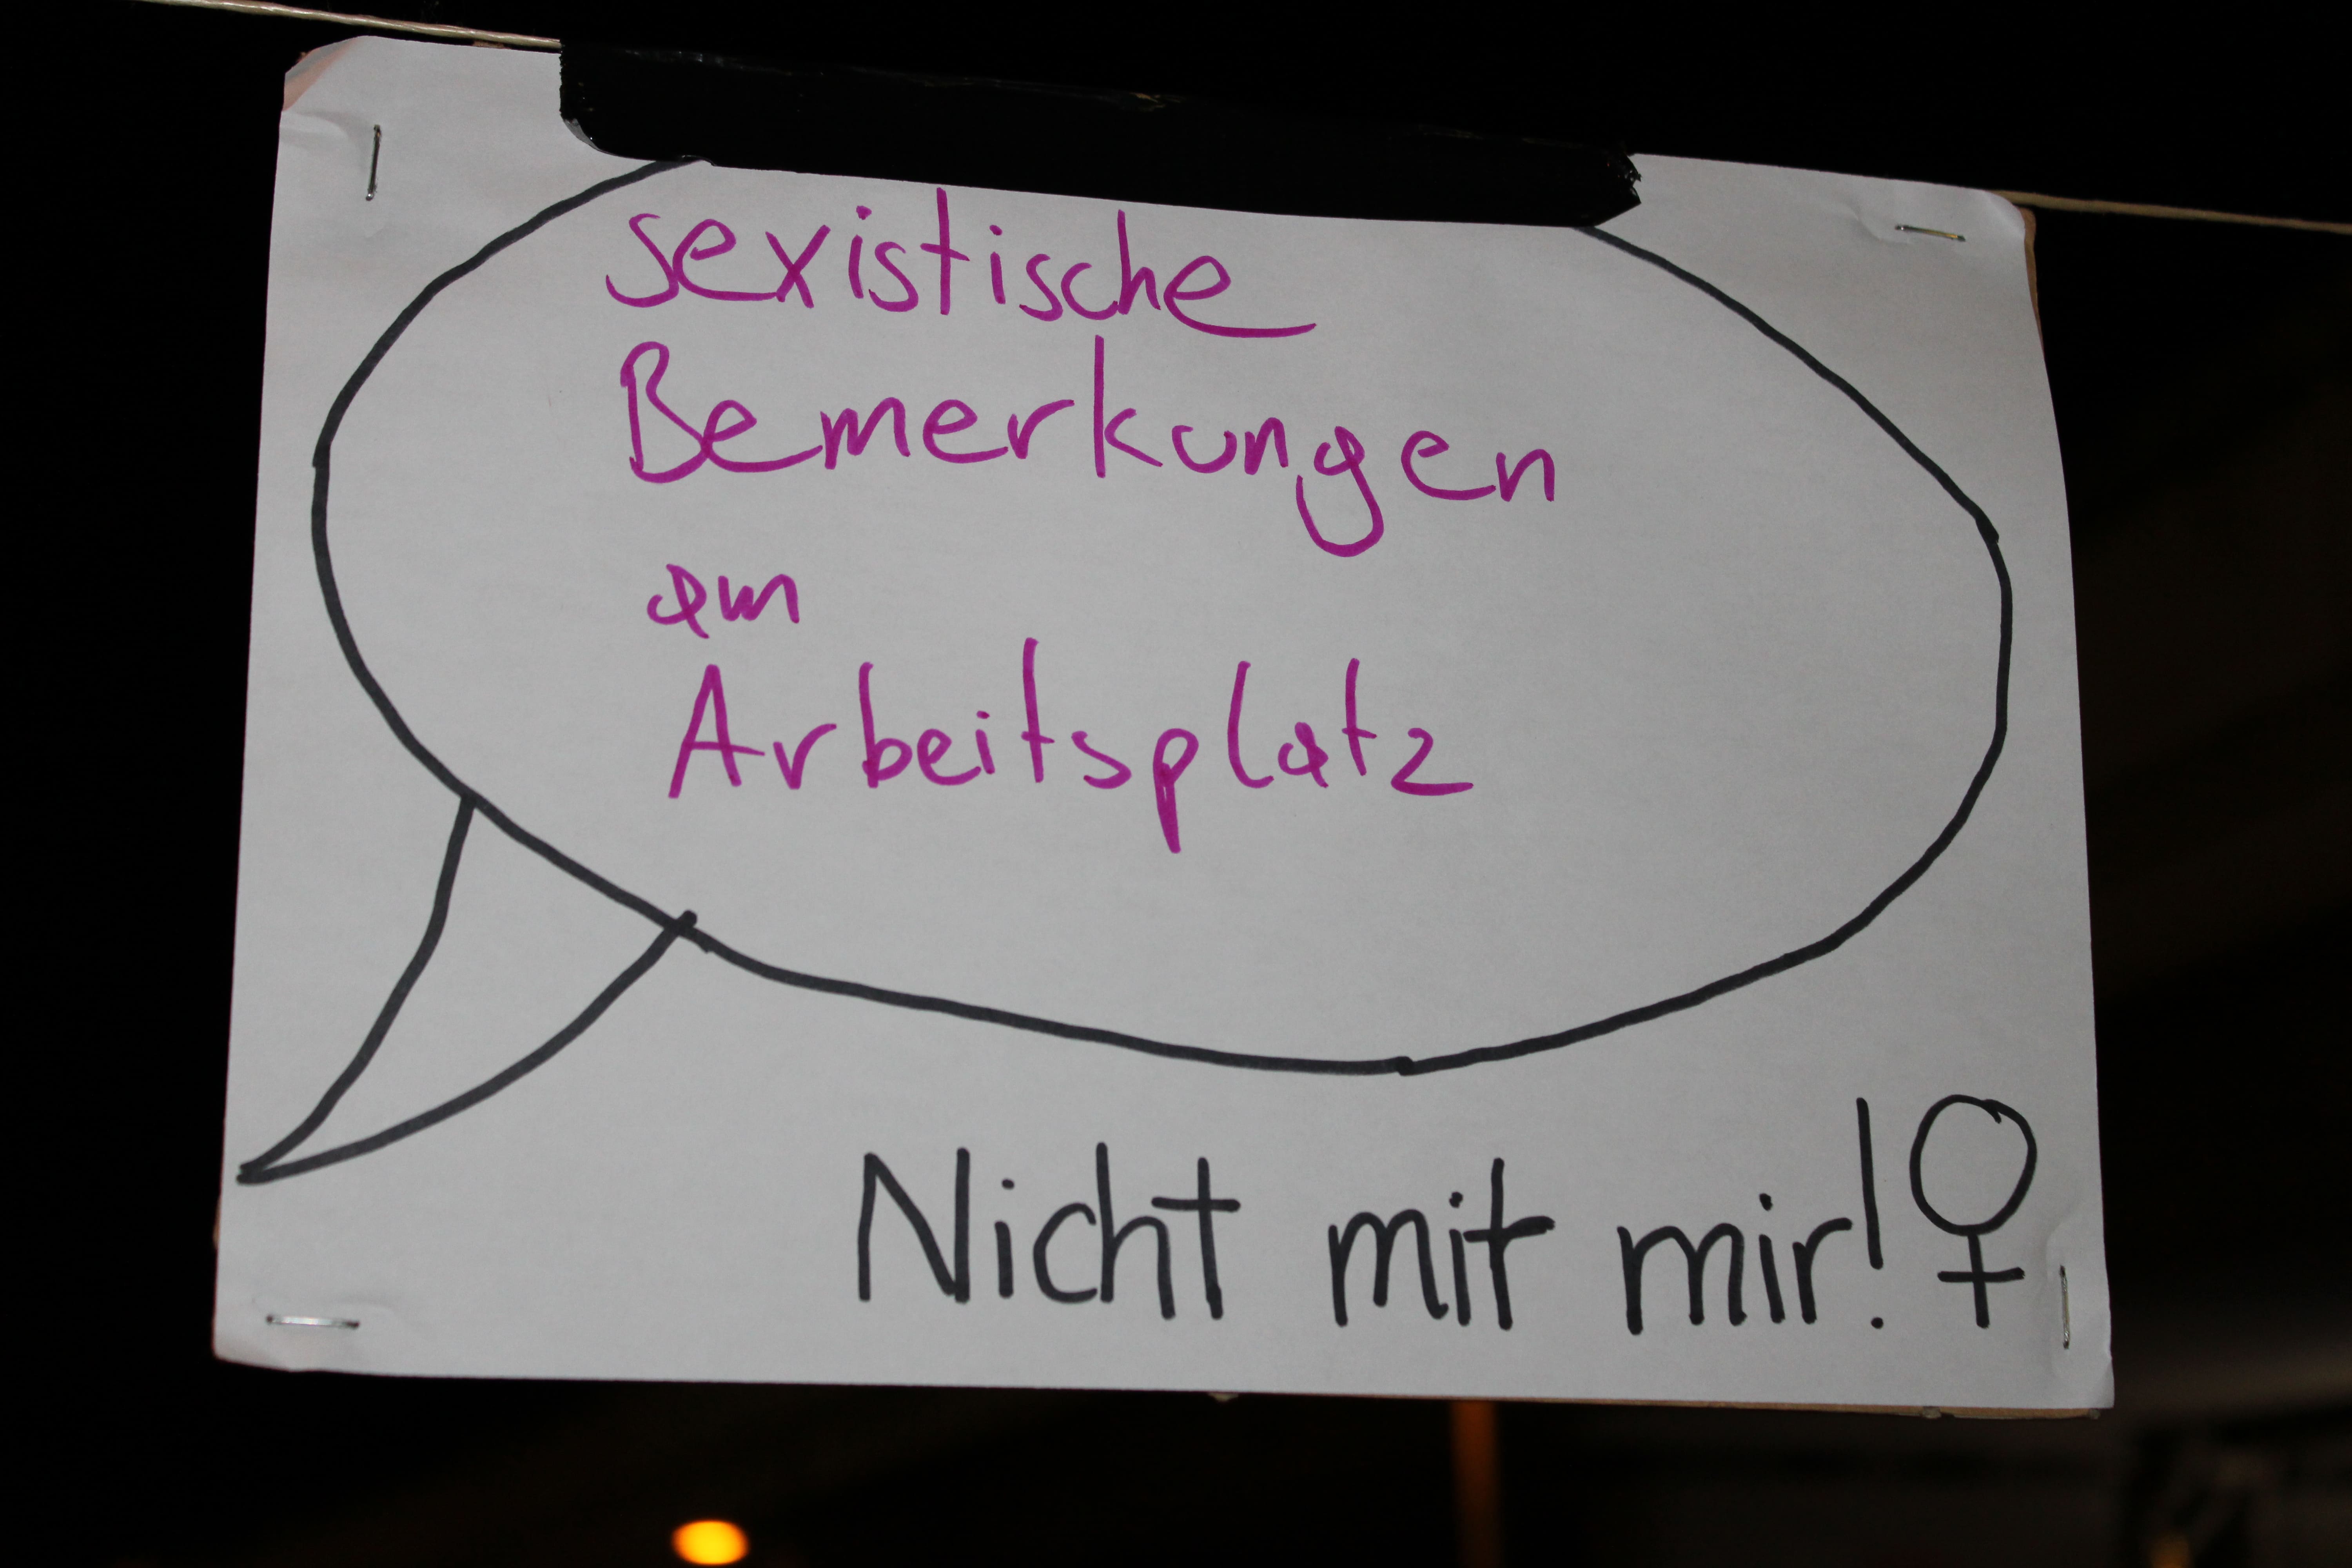 sexistische
Bemerkungen
am
Arbeitsplatz
Nicht mit mir! ♀